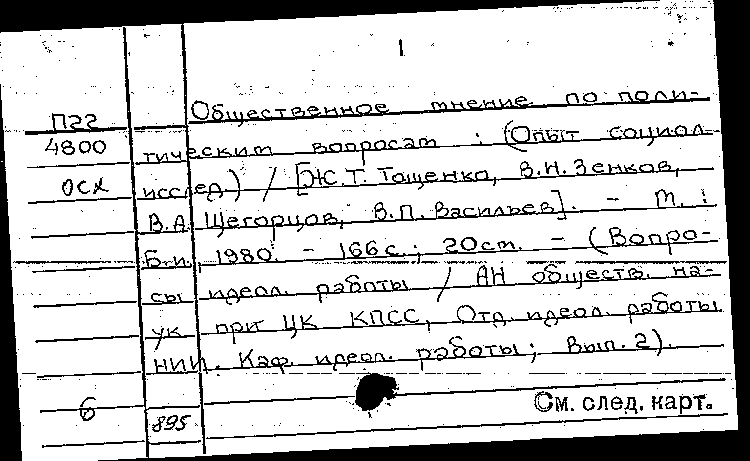 1
П22 Общественное мнение по поли-
4800 тическим вопросам : (Опыт социол.
осх исслед) / [Ж.Т. Тощенко, В.Н. Зенков,
В.А. Щегорцов, В.П. Васильев]. - М. :
Б.и., 1980. - 166 с.; 20 см. - (Вопро-
сы идеол. работы / АН обществ. на-
ук при ЦК КПСС, Отд. идеол. работы
НИИ. Каф. идеол. работы; Вып. 2).
См. след. карт.
6 895